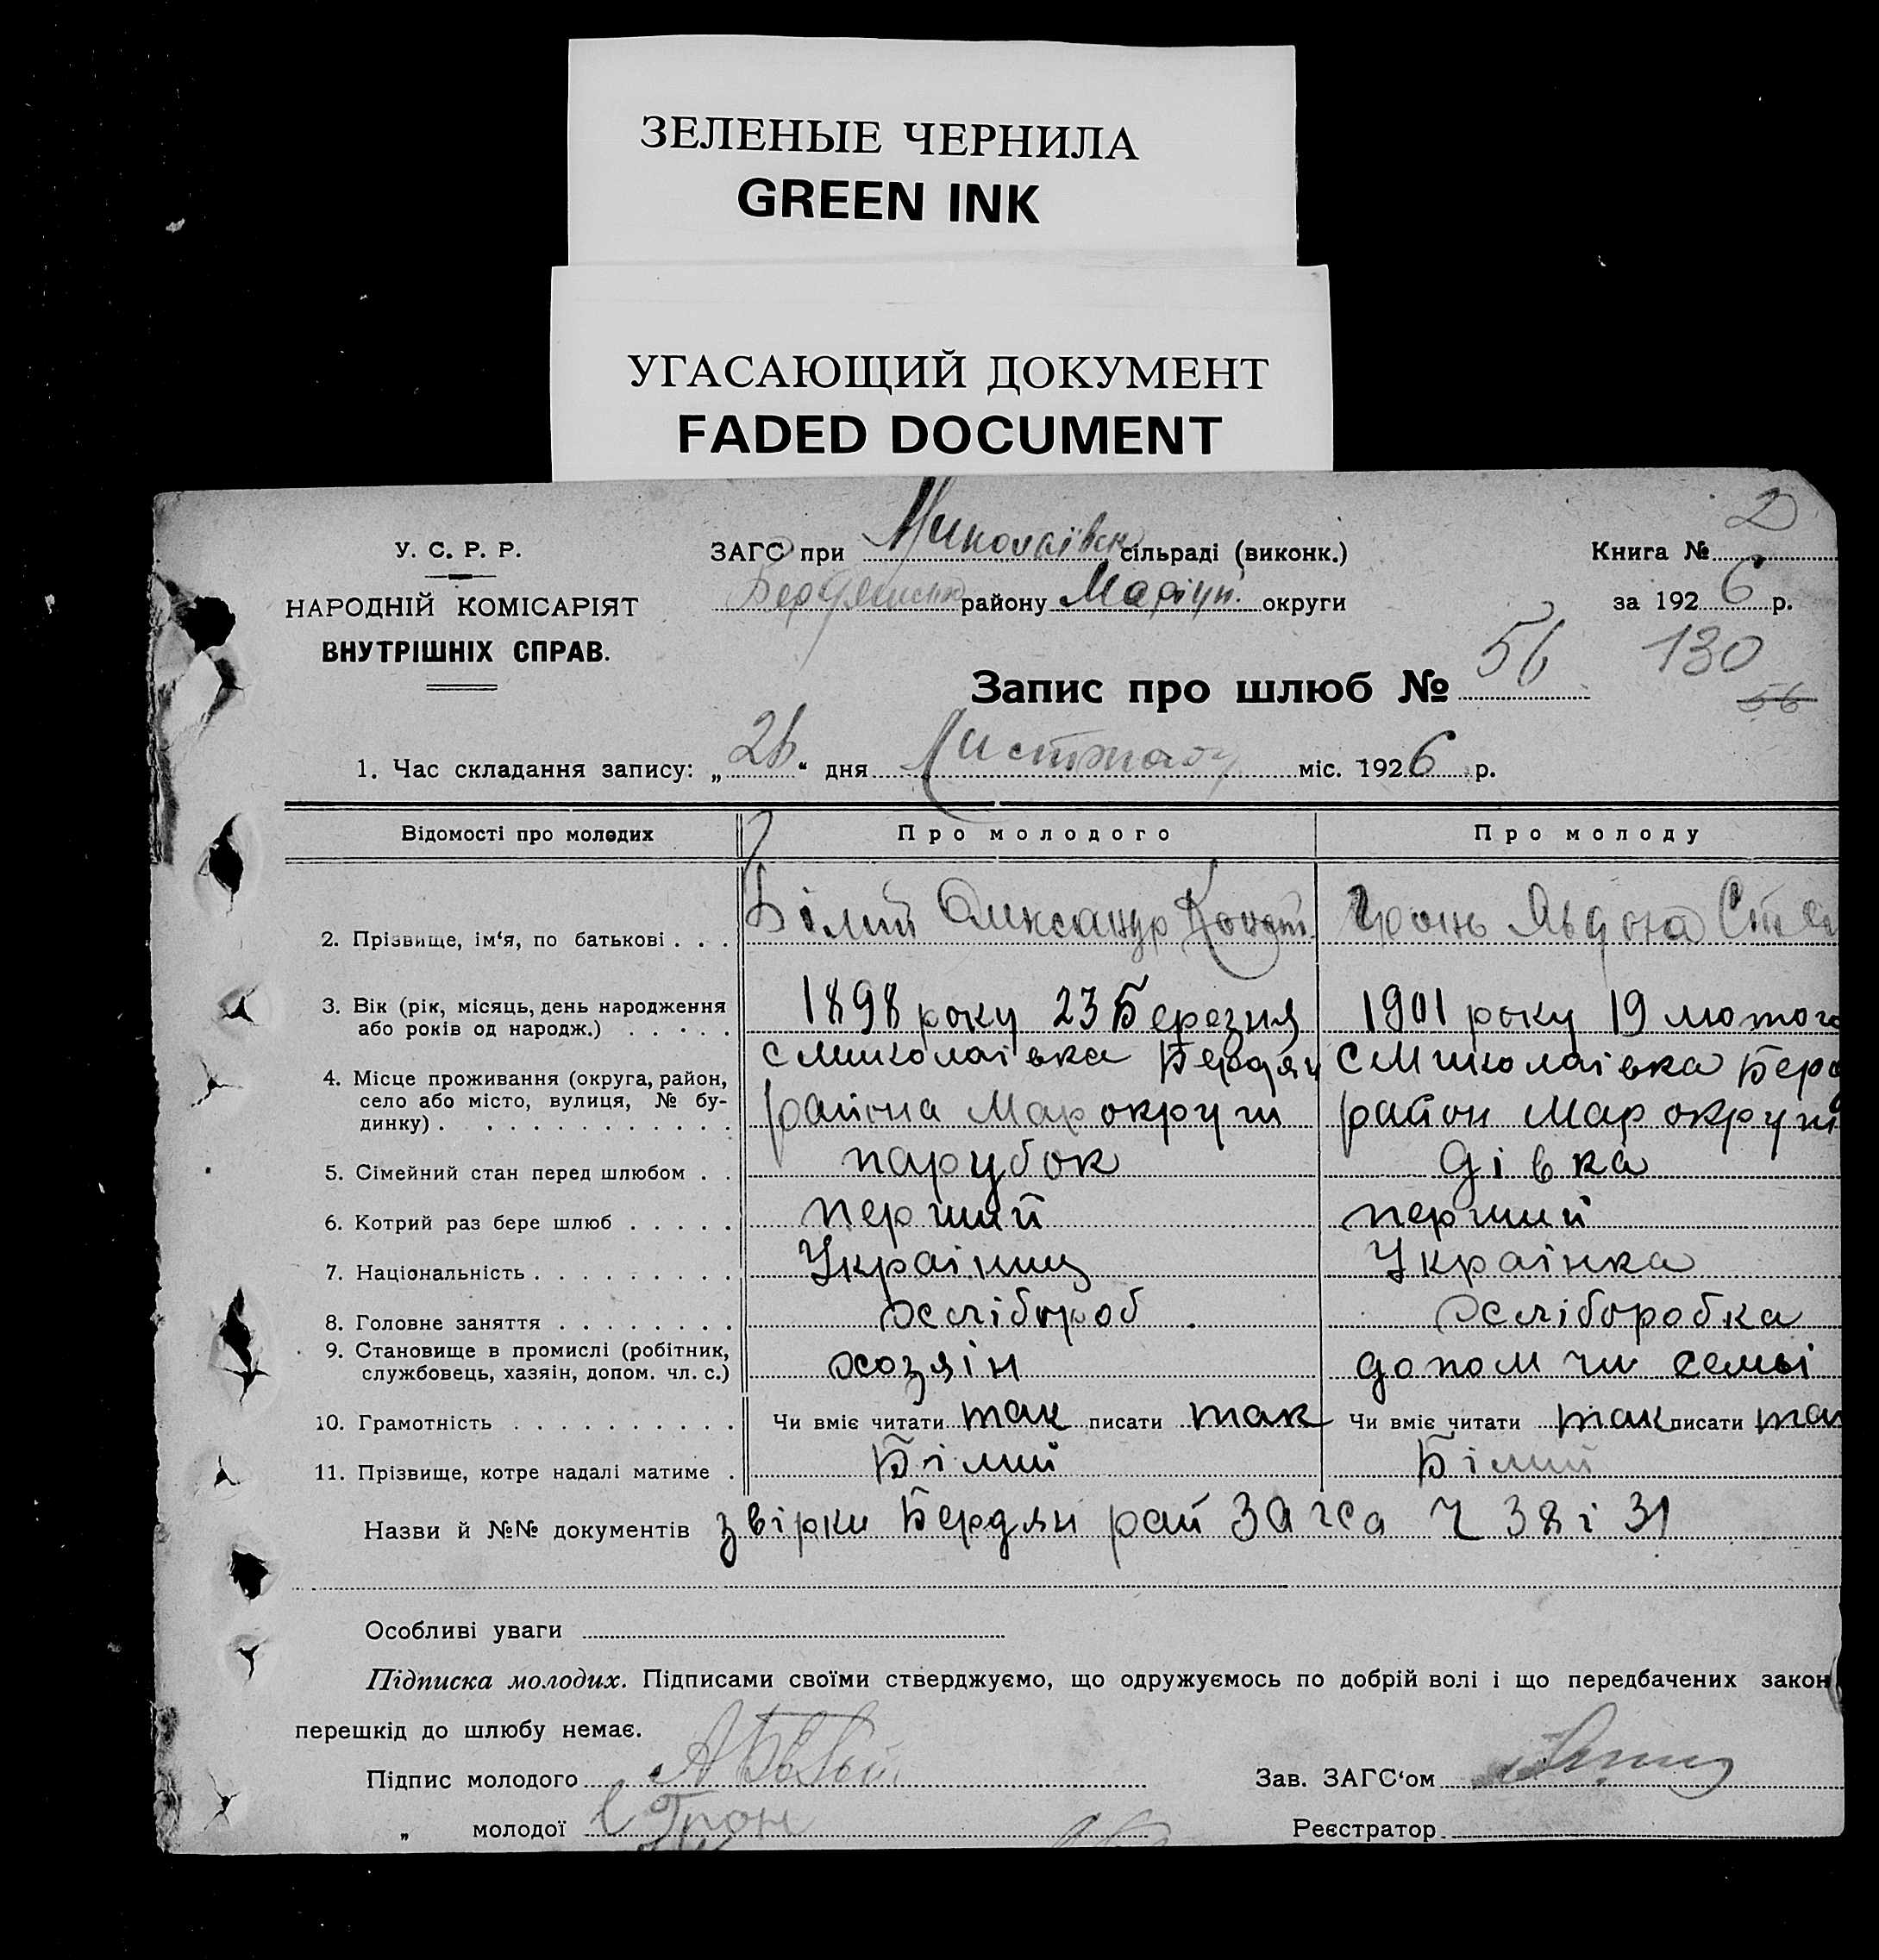 ЗЕЛЕНЫЕ ЧЕРНИЛА
GREEN INK
УГАСАЮЩИЙ ДОКУМЕНТ
FADED DOCUMENT
2
У. С. Р. Р.
НАРОДНІЙ КОМІСАРІЯТ
ВНУТРІШНІХ СПРАВ.
ЗАГС при Миколаївск сільраді (виконк.)
Бердянськ району Маріуп. округи
Книга №
за 1926 р.
Запис про шлюб № 56
130
56
1. Час складання запису: „26“ дня Листопаду міс. 1926 р.
Відомості про молодих Про молодого Про молоду
2. Прізвище, ім‘я, по батькові . . . Білий Олександр Конст. Гронь Явдоха
3. Вік (рік, місяць, день народження 1898 року 23 Березня 1901 року 19 лютого
або років од народж.) . . . . .
с Миколаівка Бердян с Миколаівка Берд
4. Місце проживання (округа, район,
село або місто, вулиця, № бу-
динку) . . . . . . . . . . . . . района Мар округи район Мар округи
5. Сімейний стан перед шлюбом . . парубок дівка
6. Котрий раз бере шлюб . . . . . перший перший
7. Національність . . . . . . . . . Украінец Украінка
8. Головне заняття . . . . . . . . хлібороб . хліборобка
9. Становище в промислі (робітник,
службовець, хазяін, допом. чл. с.) хозяін допом чл семьі
10. Грамотність . . . . . . . . . . Чи вміє читати так писати так Чи вміє читати так писати так
11. Прізвище, котре надалі матиме . Білий Білий
Назви й №№ документів звірки Бердян рай ЗАгСа Ч 38 і 31
Особливі уваги
Підписка молодих. Підписами своїми стверджуємо, що одружуємось по добрій волі і що передбачених закон
перешкід до шлюбу немає.
Підпис молодого А Белый Зав. ЗАГС‘ом
„ молодої Грон Реєстратор